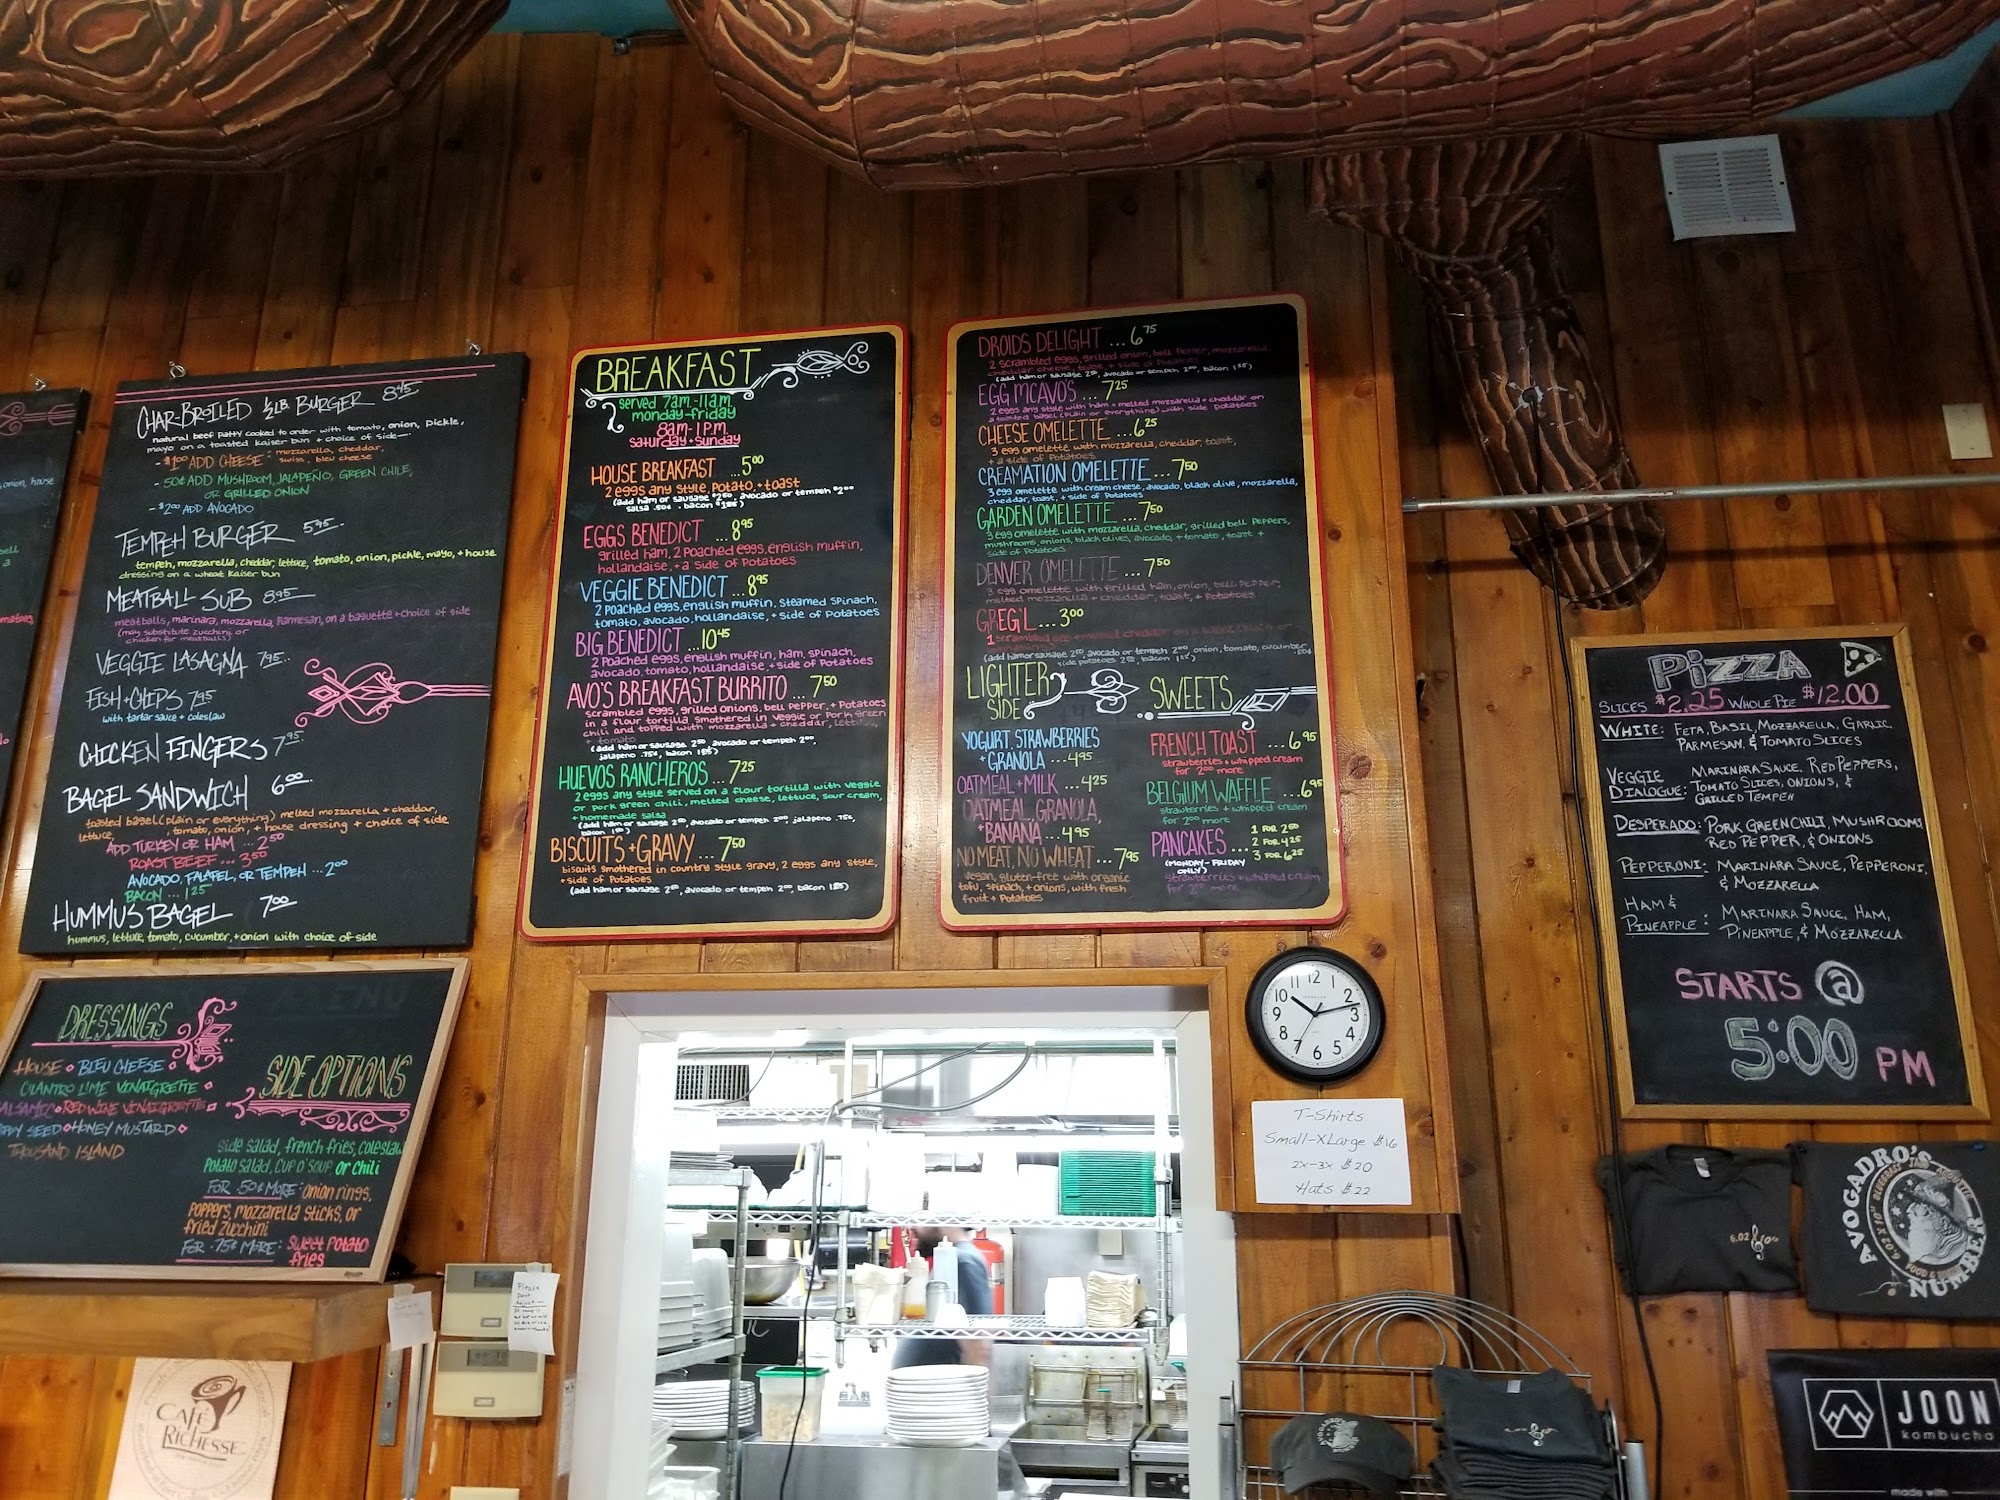 onion, house
CHAR-BROILED 1/2 LB. BURGER 8.45
natural beef patty cooked to order with tomato, onion, pickle,
mayo on a toasted kaiser bun + choice of side
- $1.00 ADD CHEESE: mozzarella, cheddar,
swiss, bleu cheese
- 50¢ ADD MUSHROOM, JALAPEÑO, GREEN CHILE,
OR GRILLED ONION
- $2.00 ADD AVOCADO
TEMPEH BURGER 5.95
tempeh, mozzarella, cheddar, lettuce, tomato, onion, pickle, mayo, + house
dressing on a wheat kaiser bun
MEATBALL SUB 8.95
meatballs, marinara, mozzarella, parmesan, on a baguette + choice of side
(may substitute zucchini or
chicken for meatballs)
VEGGIE LASAGNA 7.95
FISH + CHIPS 7.95
with tartar sauce + coleslaw
CHICKEN FINGERS 7.95
BAGEL SANDWICH 6.00
toasted bagel (plain or everything) melted mozzarella + cheddar,
lettuce, tomato, onion, + house dressing + choice of side
ADD TURKEY OR HAM ... 2.50
ROAST BEEF ... 3.50
AVOCADO, FALAFEL, OR TEMPEH ... 2.00
BACON ... 1.25
HUMMUS BAGEL 7.00
hummus, lettuce, tomato, cucumber, + onion with choice of side
DRESSINGS
HOUSE • BLEU CHEESE •
CILANTRO LIME VINAIGRETTE •
RED WINE VINAIGRETTE •
HONEY MUSTARD •
THOUSAND ISLAND
SIDE OPTIONS
side salad, french fries, coleslaw
potato salad, cup o' soup, or chili
FOR .50¢ MORE: onion rings,
poppers, mozzarella sticks, or
fried zucchini
FOR .75¢ MORE: sweet potato
fries
BREAKFAST
served 7am.-11am.
monday-friday
8am-1P.M.
saturday + sunday
HOUSE BREAKFAST ...5.00
2 eggs any style, potato, + toast
(add ham or sausage $2.50 avocado or tempeh $2.00
salsa .50¢ . bacon $1.85)
EGGS BENEDICT ...8.95
grilled ham, 2 poached eggs, english muffin,
hollandaise, + a side of potatoes
VEGGIE BENEDICT ...8.95
2 poached eggs, english muffin, steamed spinach,
tomato, avocado, hollandaise, + side of potatoes
BIG BENEDICT ...10.45
2 poached eggs, english muffin, ham, spinach,
avocado, tomato, hollandaise, + side of potatoes
AVO'S BREAKFAST BURRITO ... 7.50
scrambled eggs, grilled onions, bell pepper, + potatoes
in a flour tortilla smothered in veggie or pork green
chili and topped with mozzarella + cheddar, lettuce,
+ tomato
(add ham or sausage 2.50, avocado or tempeh 2.00,
jalapeno .75¢, bacon 1.85)
HUEVOS RANCHEROS ... 7.25
2 eggs any style served on a flour tortilla with veggie
or pork green chili, melted cheese, lettuce, sour cream,
+ homemade salsa
(add ham or sausage 2.50, avocado or tempeh 2.00 jalapeno .75¢,
bacon 1.85)
BISCUITS + GRAVY ... 7.50
biscuits smothered in country style gravy, 2 eggs any style,
+ side of potatoes
(add ham or sausage 2.50, avocado or tempeh 2.00, bacon 1.85)
DROIDS DELIGHT ... 6.75
2 scrambled eggs, grilled onion, bell pepper, mozzarella,
cheddar cheese, toast, + side of potatoes
(add ham or sausage 2.50, avocado or tempeh 2.00, bacon 1.85)
EGG MCAVO'S ... 7.25
2 eggs any style with ham + melted mozzarella + cheddar on
a toasted bagel (plain or everything) with side potatoes
CHEESE OMELETTE ... 6.25
3 egg omelette with mozzarella, cheddar, toast,
+ a side of potatoes
CREAMATION OMELETTE ... 7.50
3 egg omelette with cream cheese, avocado, black olive, mozzarella,
cheddar, toast, + side of potatoes
GARDEN OMELETTE ... 7.50
3 egg omelette with mozzarella, cheddar, grilled bell peppers,
mushrooms, onions, black olives, avocado, + tomato, toast +
side of potatoes
DENVER OMELETTE ... 7.50
3 egg omelette with grilled ham, onion, bell pepper,
melted mozzarella + cheddar, toast, + potatoes
GREG'L ... 3.00
1 scrambled egg + melted cheddar on a bagel (plain or
(add ham or sausage 2.50, avocado or tempeh 2.00, onion, tomato, cucumber .50¢
side potatoes 2.50, bacon 1.85)
LIGHTER
SIDE
YOGURT, STRAWBERRIES
+ GRANOLA ... 4.95
OATMEAL + MILK ... 4.25
OATMEAL, GRANOLA,
+ BANANA ... 4.95
NO MEAT, NO WHEAT ... 7.95
vegan, gluten-free with organic
tofu, spinach, + onions, with fresh
fruit + potatoes
SWEETS
FRENCH TOAST ... 6.95
strawberries + whipped cream
for 2.00 more
BELGIUM WAFFLE ... 6.95
strawberries + whipped cream
for 2.00 more
PANCAKES ... 1 FOR 2.50
2 FOR 4.25
3 FOR 6.25
(MONDAY-FRIDAY
ONLY)
strawberries + whipped cream
for 2.00 more
PIZZA
SLICES $2.25 WHOLE PIE $12.00
WHITE: FETA, BASIL, MOZZARELLA, GARLIC
PARMESAN, & TOMATO SLICES
VEGGIE DIALOGUE: MARINARA SAUCE, RED PEPPERS,
TOMATO SLICES, ONIONS, &
GRILLED TEMPEH
DESPERADO: PORK GREEN CHILI, MUSHROOMS
RED PEPPER, & ONIONS
PEPPERONI: MARINARA SAUCE, PEPPERONI,
& MOZZARELLA
HAM & PINEAPPLE: MARINARA SAUCE, HAM,
PINEAPPLE, & MOZZARELLA
STARTS @
5:00 PM
12 1 2 3 4 5 6 7 8 9 10 11
T-Shirts
Small-XLarge $16
2x-3x $20
Hats $22
6.02 10
AVOGADRO'S
NUMBER
JOON
kombucha
made with
CAFÉ
RICHESSE
Please
Dont
Adjust